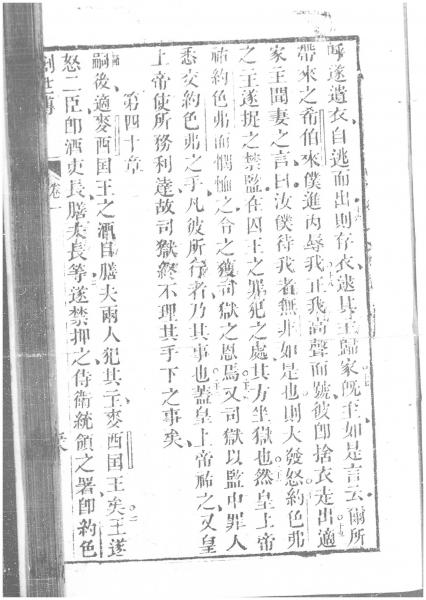 呼遂遺衣自逃而出則存衣逮其主歸家旣至如是言云爾所
帶來之希伯來僕進內辱我正我高聲而號彼卽捨衣走出適
家主聞妻之言曰汝僕待我者無非如是也則大發怒約色弗
之主遂捉之禁監在囚王之罪犯之處其方坐獄也然皇上帝
祐約色弗而憫恤之令之獲司獄之恩焉又司獄以監中罪人
悉交約色弗之手凡彼所行者乃其事也蓋皇上帝祐之又皇
上帝使所務利達故司獄終不理其手下之事矣
第四十章
嗣後適麥西国王之酒目膳夫兩人犯其主麥西国王矣王遂
怒二臣卽酒吏長膳夫長等遂禁押之侍衛統領之署卽約色
創世傳
卷一